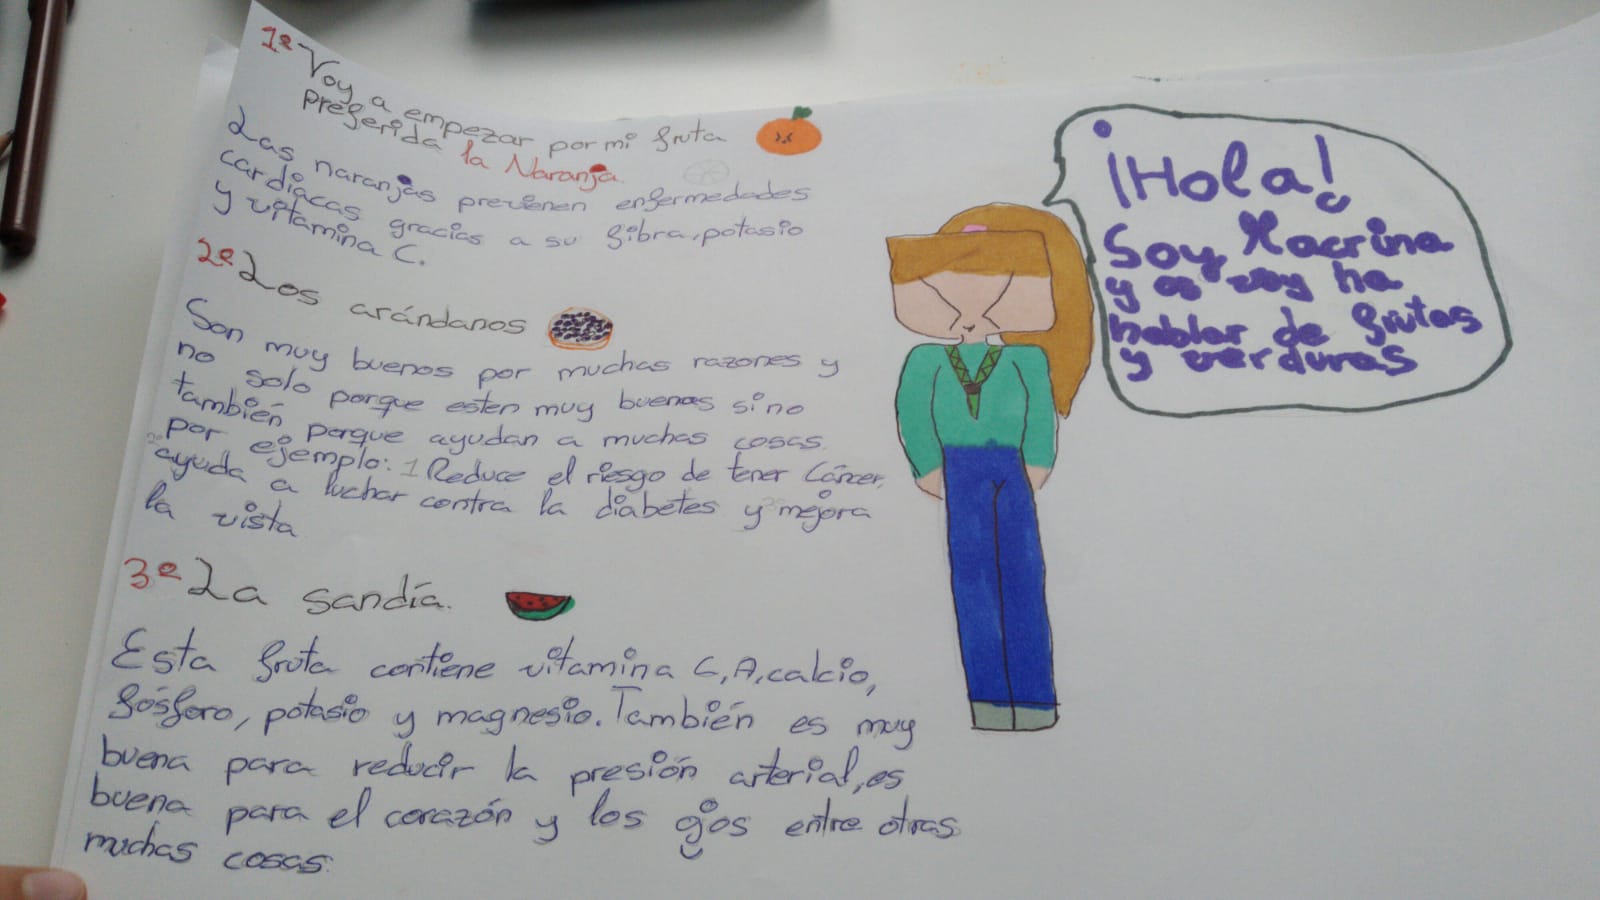 1º Voy a empezar por mi fruta
preferida la Naranja.
Las naranjas previenen enfermedades
cardiacas gracias a su fibra, potasio
y vitamina C.
2º Los arándanos
Son muy buenos por muchas razones y
no solo porque esten muy buenas sino
también porque ayudan a muchas cosas.
por ejemplo: 1 Reduce el riesgo de tener Cáncer,
2º ayuda a luchar contra la diabetes y mejora
la vista
3º La sandía.
Esta fruta contiene vitamina C, A, calcio,
fósforo, potasio y magnesio. También es muy
buena para reducir la presión arterial, es
buena para el corazón y los ojos entre otras
muchas cosas.
¡Hola!
Soy Macrina
y os voy ha
hablar de frutas
y verduras